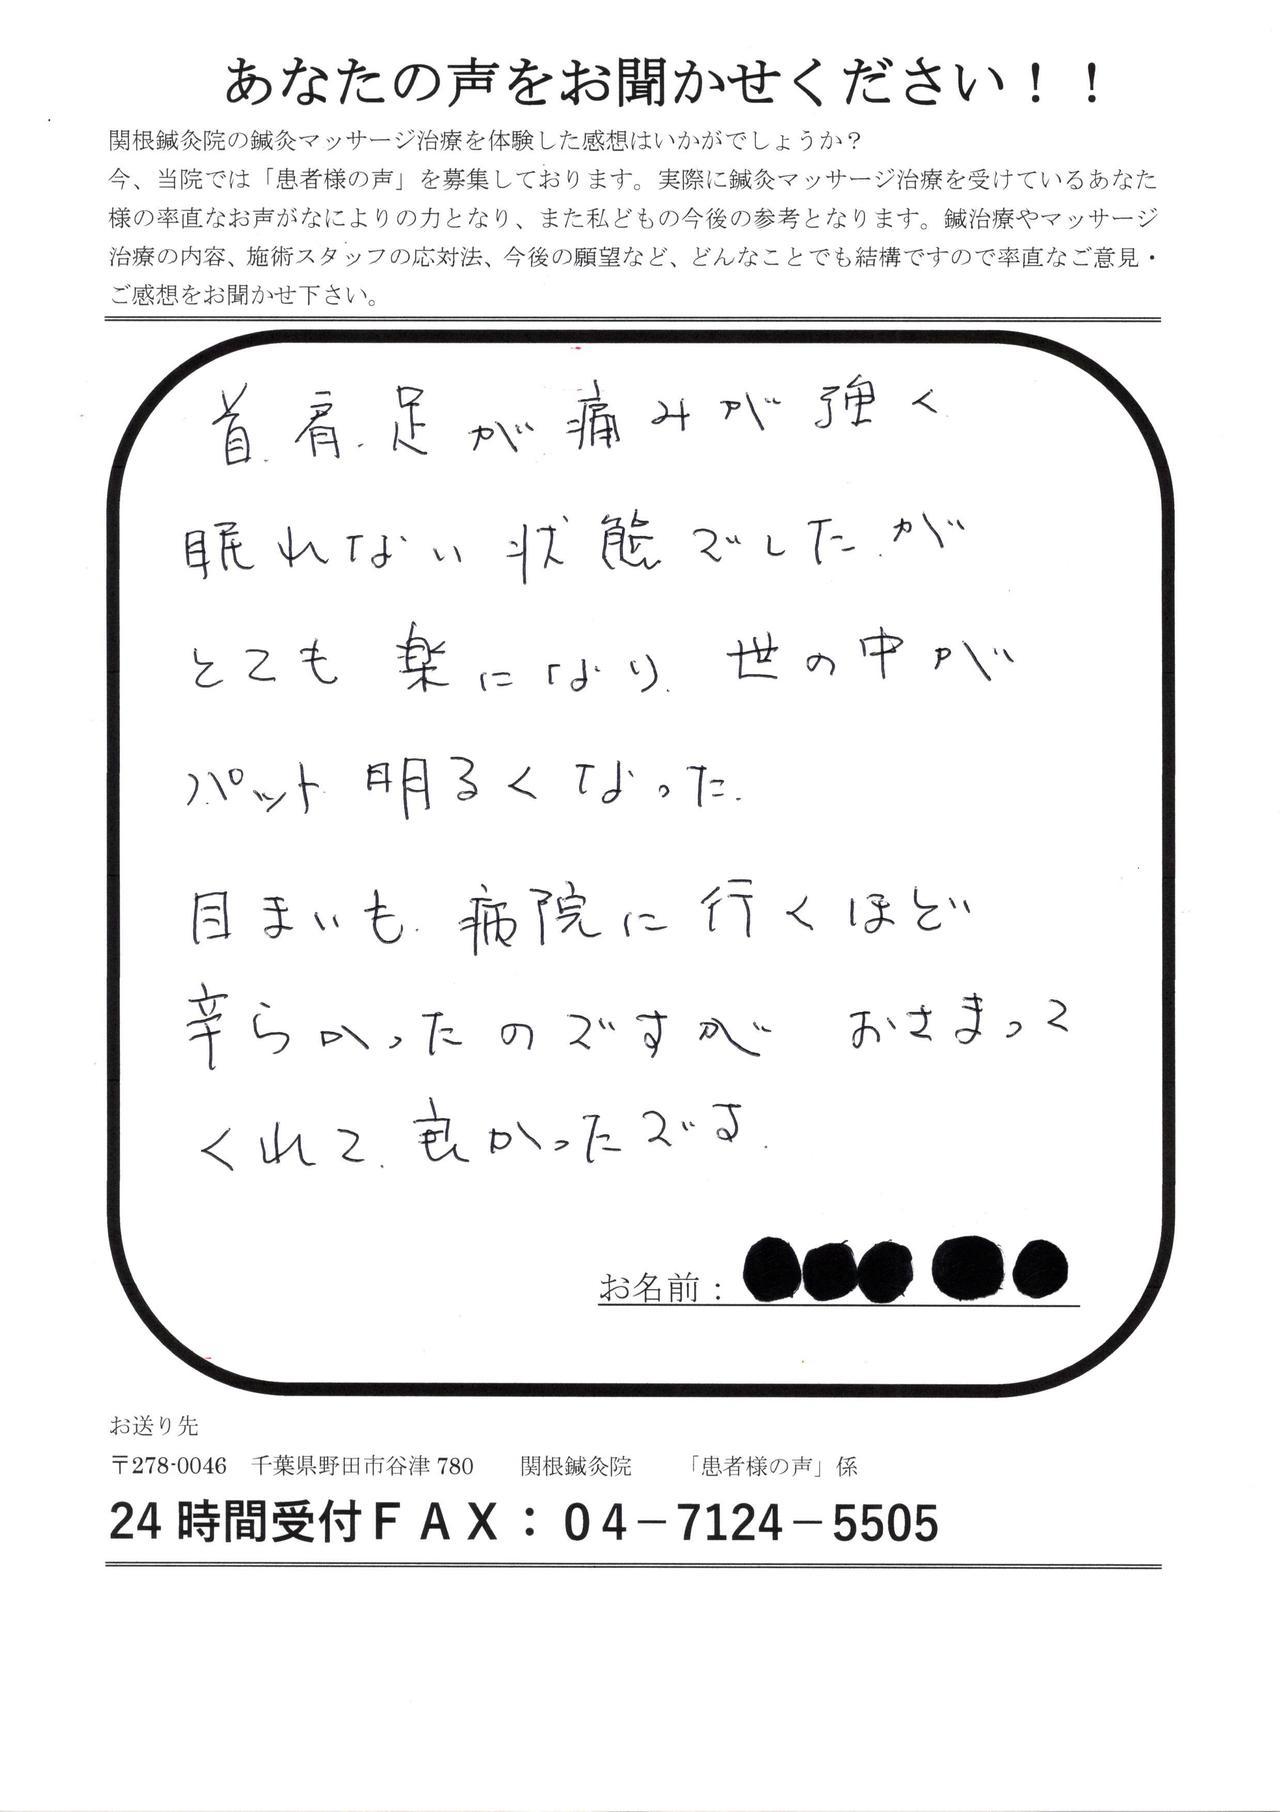 あなたの声をお聞かせください！！
関根鍼灸院の鍼灸マッサージ治療を体験した感想はいかがでしょうか？
今、当院では「患者様の声」を募集しております。実際に鍼灸マッサージ治療を受けているあなた
様の率直なお声がなによりの力となり、また私どもの今後の参考となります。鍼治療やマッサージ
治療の内容、施術スタッフの応対法、今後の願望など、どんなことでも結構ですので率直なご意見・
ご感想をお聞かせ下さい。
首、肩、足が痛みが強く
眠れない状態でしたが
とても楽になり、世の中が
パット明るくなった。
目まいも、病院に行くほど
辛らかったのですが おさまって
くれて、良かったです。
お名前：
お送り先
〒278-0046 千葉県野田市谷津 780 関根鍼灸院 「患者様の声」係
24 時間受付ＦＡＸ：０４－7124－5505